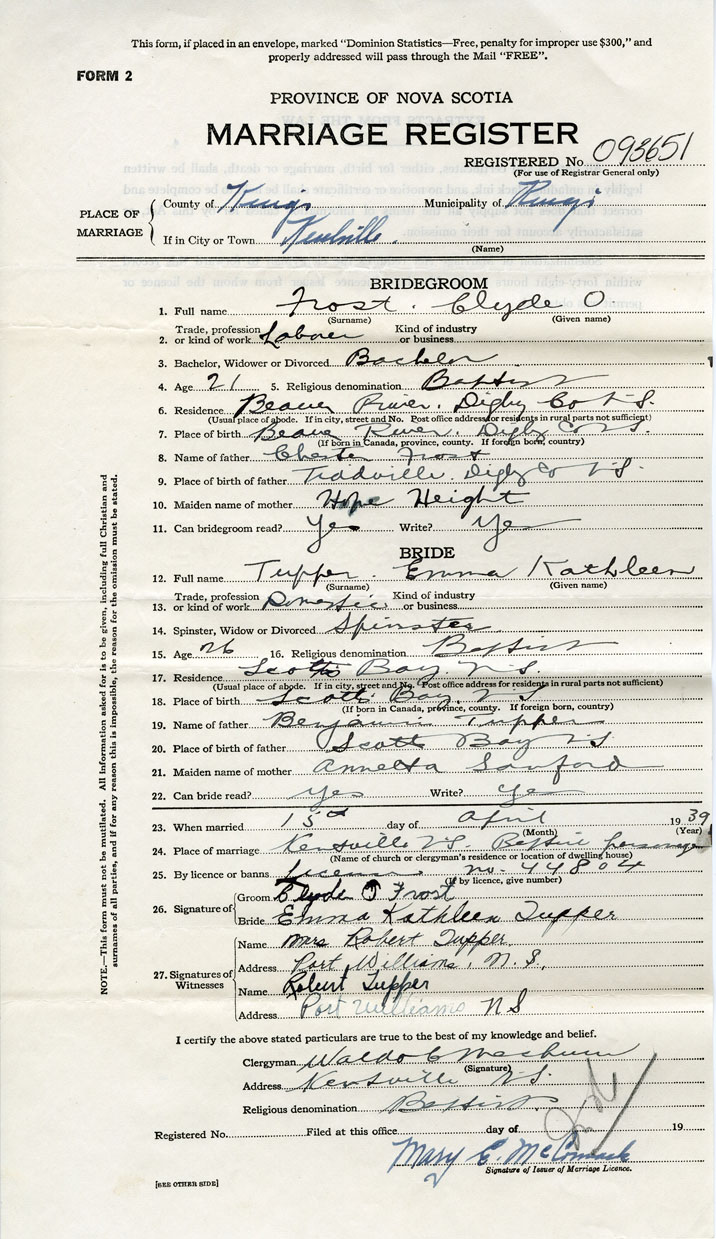 This form, if placed in an envelope, marked "Dominion Statistics—Free, penalty for improper use $300," and
properly addressed will pass through the Mail "FREE".
FORM 2
PROVINCE OF NOVA SCOTIA
MARRIAGE REGISTER
REGISTERED No. 093651
(For use of Registrar General only)
PLACE OF MARRIAGE
County of Kings Municipality of Kings
If in City or Town Kentville.
(Name)
BRIDEGROOM
1. Full name Frost. Clyde O.
(Surname) (Given name)
2. Trade, profession or kind of work Laborer Kind of industry or business
3. Bachelor, Widower or Divorced Bachelor
4. Age 21 5. Religious denomination Baptist
6. Residence Beaver River. Digby Co N.S.
(Usual place of abode. If in city, street and No. Post office address for residents in rural parts not sufficient)
7. Place of birth Beaver River. Digby Co N.S.
(If born in Canada, province, county. If foreign born, country)
8. Name of father Chester Frost
9. Place of birth of father Digby Co N.S.
10. Maiden name of mother Hope Height
11. Can bridegroom read? Yes Write? Yes
BRIDE
12. Full name Tupper. Emma Kathleen
(Surname) (Given name)
13. Trade, profession or kind of work Domestic Kind of industry or business
14. Spinster, Widow or Divorced Spinster
15. Age 26 16. Religious denomination Baptist
17. Residence Scotts Bay N.S
(Usual place of abode. If in city, street and No. Post office address for residents in rural parts not sufficient)
18. Place of birth Scotts Bay. N.S
(If born in Canada, province, county. If foreign born, country)
19. Name of father Benjamin Tupper
20. Place of birth of father Scotts Bay N.S
21. Maiden name of mother Annetta Sanford
22. Can bride read? Yes Write? Yes
23. When married 15 day of April 1939
(Month) (Year)
24. Place of marriage Kentville N.S. Baptist parsonage
(Name of church or clergyman's residence or location of dwelling house)
25. By licence or banns License no. 44804
(If by licence, give number)
26. Signature of
Groom Clyde O Frost
Bride Emma Kathleen Tupper
27. Signatures of Witnesses
Name Mrs Robert Tupper.
Address Port Williams, N.S.
Name Robert Tupper
Address Port Williams NS
I certify the above stated particulars are true to the best of my knowledge and belief.
Clergyman Waldo C Machum
(Signature)
Address Kentville N.S.
Religious denomination Baptist.
Registered No. Filed at this office day of 19
Mary E. McCormick
Signature of Issuer of Marriage Licence.
[SEE OTHER SIDE]
NOTE.—This form must not be mutilated. All information asked for is to be given, including full Christian and
surnames of all parties, and if for any reason this is impossible, the reason for the omission must be stated.